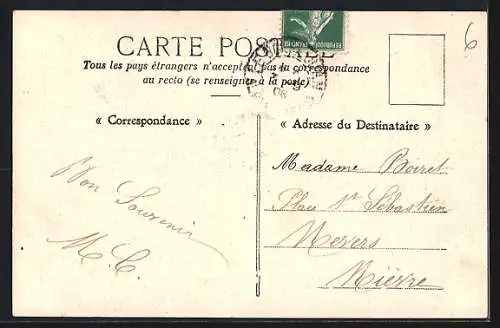 CARTE POSTALE
Tous les pays étrangers n'acceptent pas la correspondance
au recto (se renseigner à la poste)
« Correspondance »
« Adresse du Destinataire »
REPUBLIQUE FRANÇAISE
08
6
Bon Souvenir
M. C.
Madame Boiret
Place St Sébastien
Nevers
Nièvre